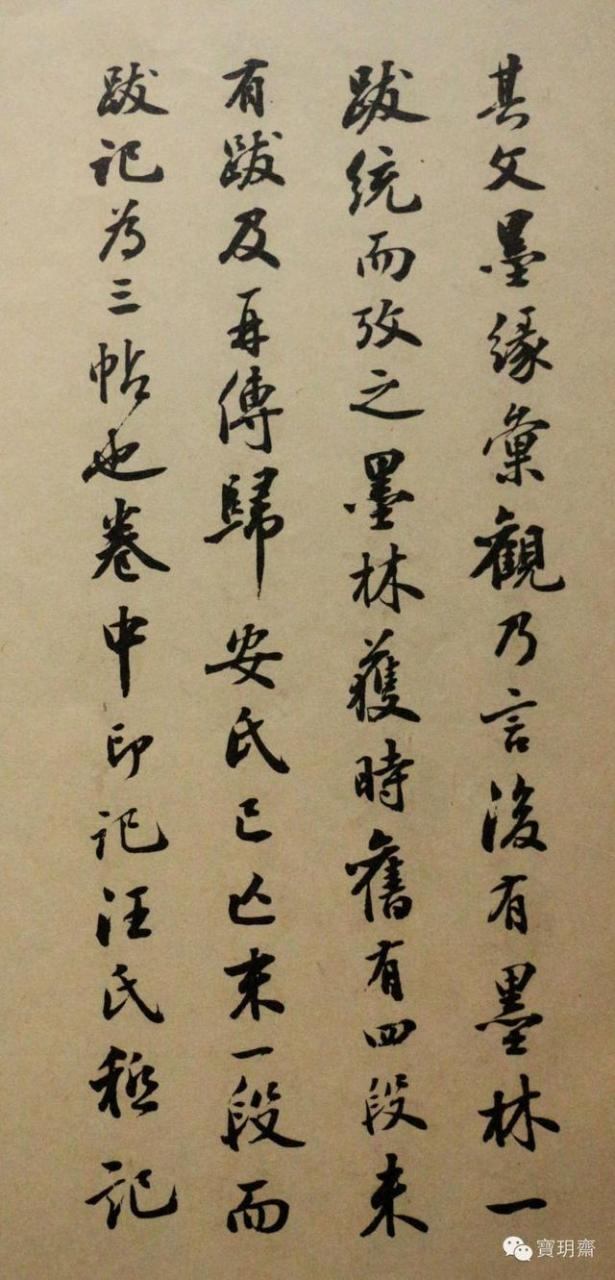 其文墨緣彙觀乃言後有墨林一
跋統而攷之墨林獲時舊有四段末
有跋及再傳歸安氏已亡末一段而
跋記為三帖也卷中印記汪氏稱記
寶玥齋